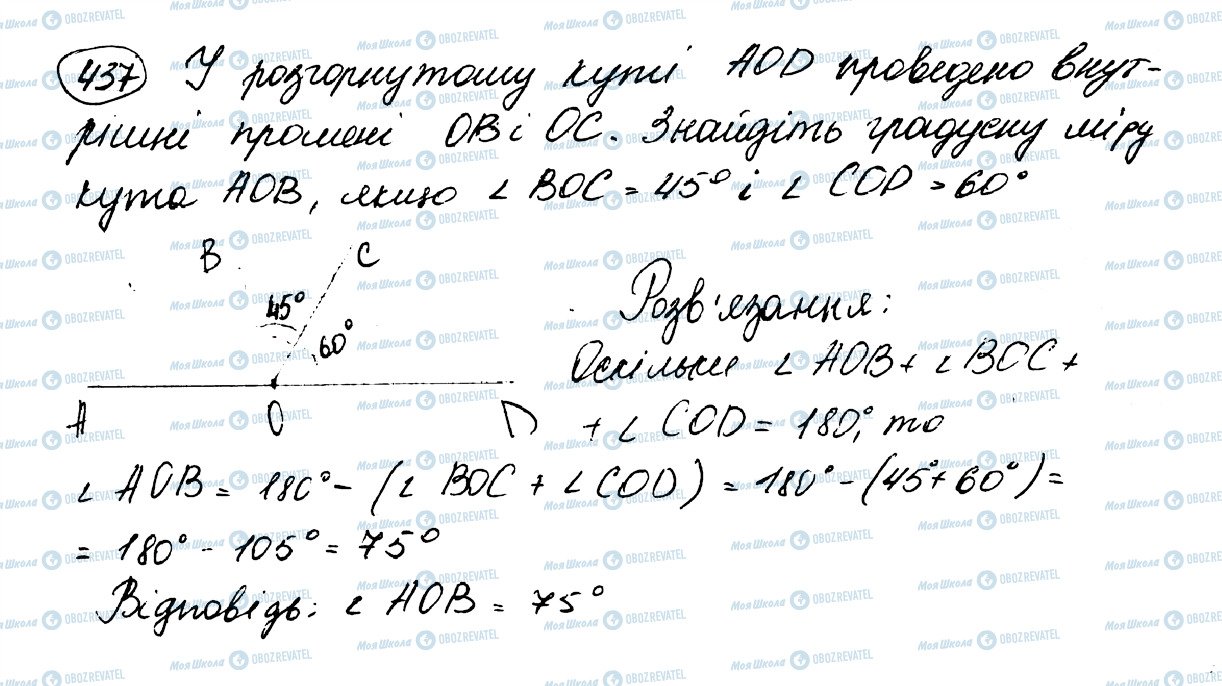 437 У розгорнутому куті AOD проведено внут-
рішні промені OB і OC. Знайдіть градусну міру
кута AOB, якщо ∠ BOC = 45° і ∠ COD = 60°
B C
45°
60°
A O D
Розв'язання:
Оскільки ∠ AOB + ∠ BOC +
+ ∠ COD = 180°, то
∠ AOB = 180° - (∠ BOC + ∠ COD) = 180° - (45° + 60°) =
= 180° - 105° = 75°
Відповідь: ∠ AOB = 75°